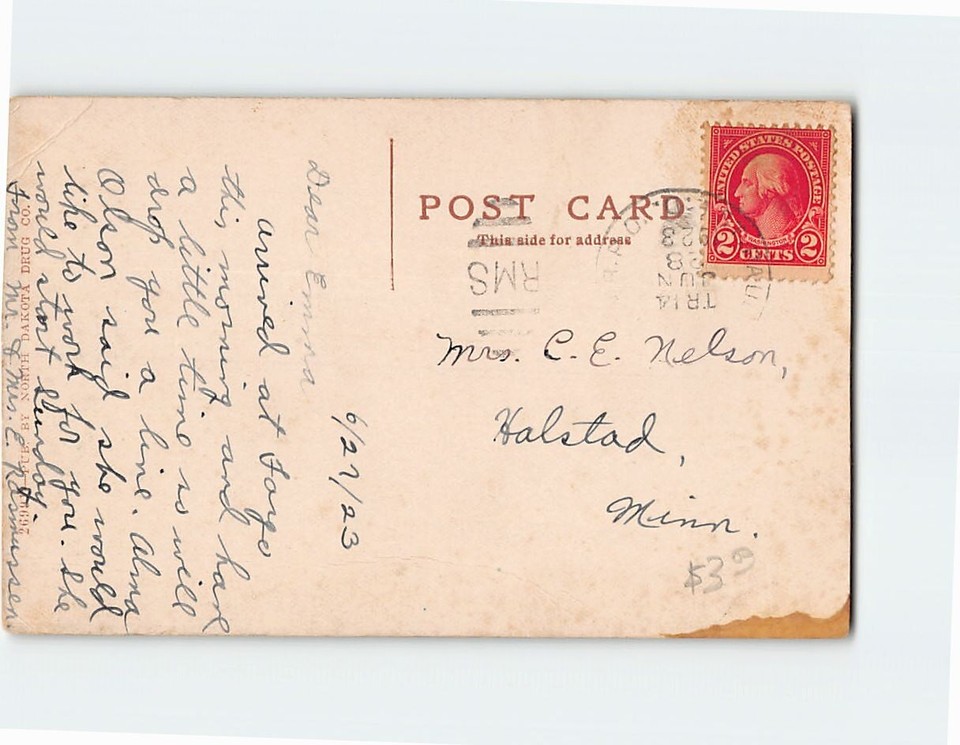 6/27/23
Dear Emma
arrived at Fargo
this morning and have
a little time so will
drop you a line. Alma
Olson said she would
like to work for you. She
would start Sunday.
From Mr. & Mrs. E. Rasmussen
PUB. BY NORTH DAKOTA DRUG CO.
POST CARD
This side for address
UNITED STATES POSTAGE
WASHINGTON
2 CENTS 2
TR 14
JUN
28
1923
RMS
Mrs. C. E. Nelson,
Halstad,
Minn.
$3